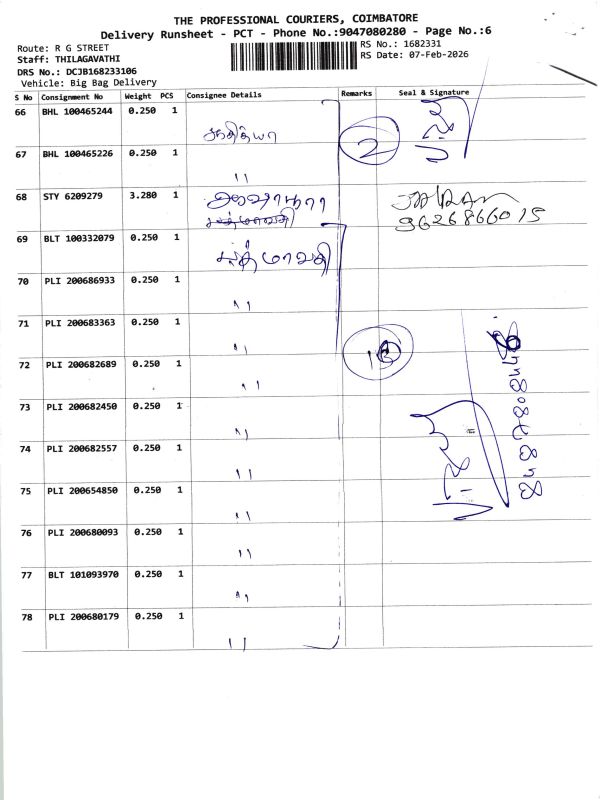 THE PROFESSIONAL COURIERS, COIMBATORE
Delivery Runsheet - PCT - Phone No.:9047080280 - Page No.:6
Route: R G STREET
RS No.: 1682331
Staff: THILAGAVATHI
RS Date: 07-Feb-2026
DRS No.: DCJB168233106
Vehicle: Big Bag Delivery
S No Consignment No Weight PCS Consignee Details Remarks Seal & Signature
66 BHL 100465244 0.250 1
2
67 BHL 100465226 0.250 1 "
68 STY 6209279 3.280 1
9626866015
69 BLT 100332079 0.250 1 பத்மாவதி
70 PLI 200686933 0.250 1 "
71 PLI 200683363 0.250 1 "
72 PLI 200682689 0.250 1 "
73 PLI 200682450 0.250 1 "
74 PLI 200682557 0.250 1 "
75 PLI 200654850 0.250 1 "
76 PLI 200680093 0.250 1 "
77 BLT 101093970 0.250 1 "
78 PLI 200680179 0.250 1 "